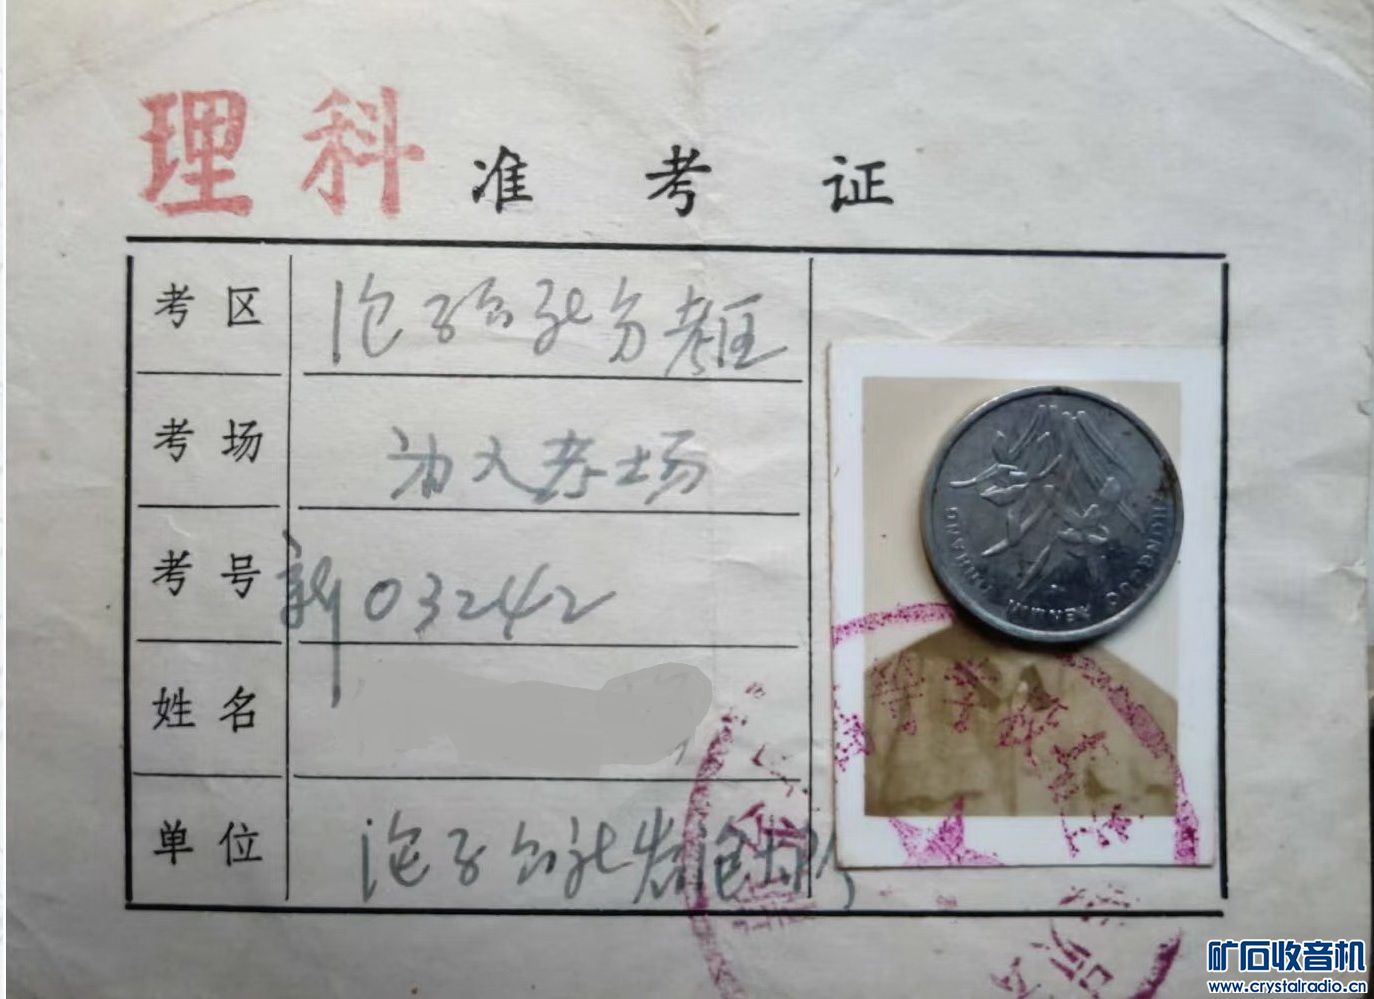 理科 准考证
考区 沱子公社分考区
考场 为人考场
考号 新03242
姓名
单位 沱子公社
ZHONGGUO RENMIN YINHANG
矿石收音机
www.crystalradio.cn